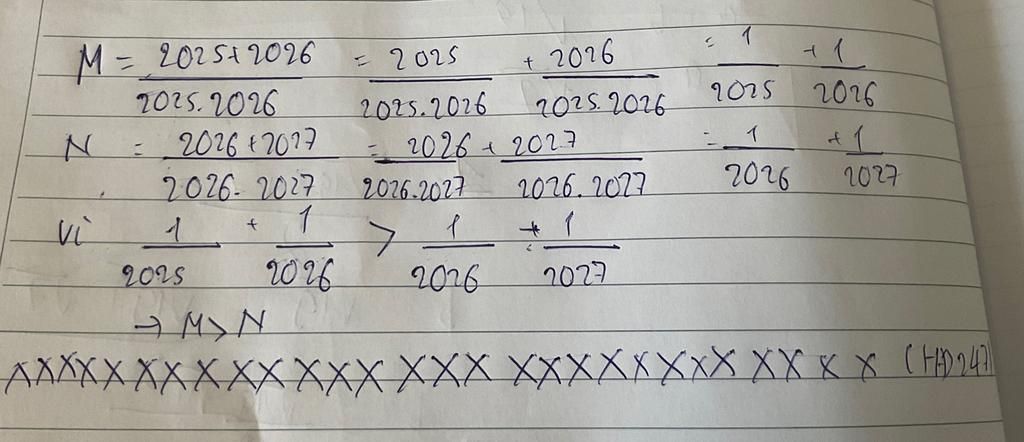 M = 2025+2026 / 2025.2026 = 2025 / 2025.2026 + 2026 / 2025.2026 = 1 / 2025 + 1 / 2026
N = 2026+2027 / 2026.2027 = 2026 / 2026.2027 + 2027 / 2026.2027 = 1 / 2026 + 1 / 2027
Vì 1 / 2025 + 1 / 2026 > 1 / 2026 + 1 / 2027
→ M > N
XXXXXX XXXXXX XXX XXX XXXXXXXX XX X X (HD247)